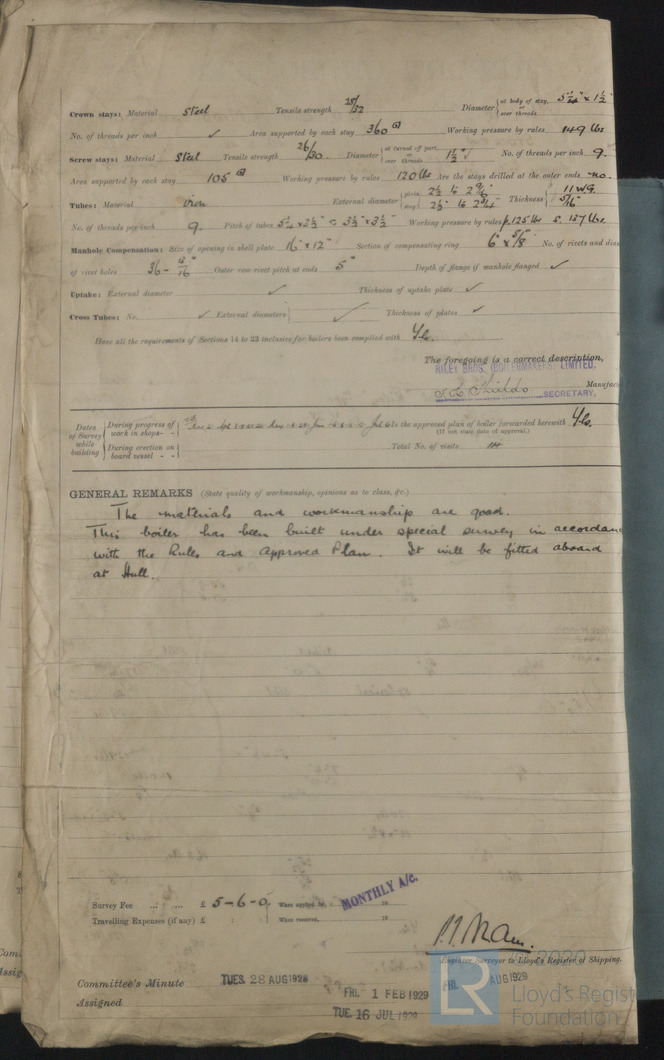 Crown stays: Material Steel Tensile strength 28/32 Diameter { at body of stay, or over threads 5¼" x 1½"
No. of threads per inch ✓ Area supported by each stay 360 Working pressure by rules 149 lbs
Screw stays: Material Steel Tensile strength 26/30 Diameter { at turned off part, or over threads 1½" ✓ No. of threads per inch 9.
Area supported by each stay 105 Working pressure by rules 120 lbs Are the stays drilled at the outer ends no.
Tubes: Material iron External diameter { plain stay Thickness { 11 WG. 5/16"
No. of threads per inch 9. Pitch of tubes Working pressure by rules
Manhole Compensation: Size of opening in shell plate 16" x 12" Section of compensating ring 6" x 5/8" No. of rivets and diam
of rivet holes 36 - 13/16 Outer row rivet pitch at ends 5" Depth of flange if manhole flanged ✓
Uptake: External diameter ✓ Thickness of uptake plate ✓
Cross Tubes: No. ✓ External diameters ✓ Thickness of plates ✓
Have all the requirements of Sections 14 to 23 inclusive for boilers been complied with Yes.
The foregoing is a correct description,
RILEY BROS. (BOILERMAKERS) LIMITED,
Childs SECRETARY, Manufac
Dates of Survey while building { During progress of work in shops - - Is the approved plan of boiler forwarded herewith Yes.
(If not state date of approval.)
During erection on board vessel - - Total No. of visits 14
GENERAL REMARKS (State quality of workmanship, opinions as to class, &c.)
The materials and workmanship are good.
This boiler has been built under special survey in accordan
with the Rules and Approved Plan. It will be fitted aboard
at Hull.
Survey Fee ... ... £ 5-6-0 When applied for, MONTHLY A/c. 19
Travelling Expenses (if any) £ : : When received, 19
Engineer Surveyor to Lloyd's Register of Shipping.
Committee's Minute TUES. 28 AUG 1928 FRI. 1 FEB 1929 FRI. AUG 1929
Assigned TUE. 16 JUL 1929
LR
Lloyd's Regist
Foundation